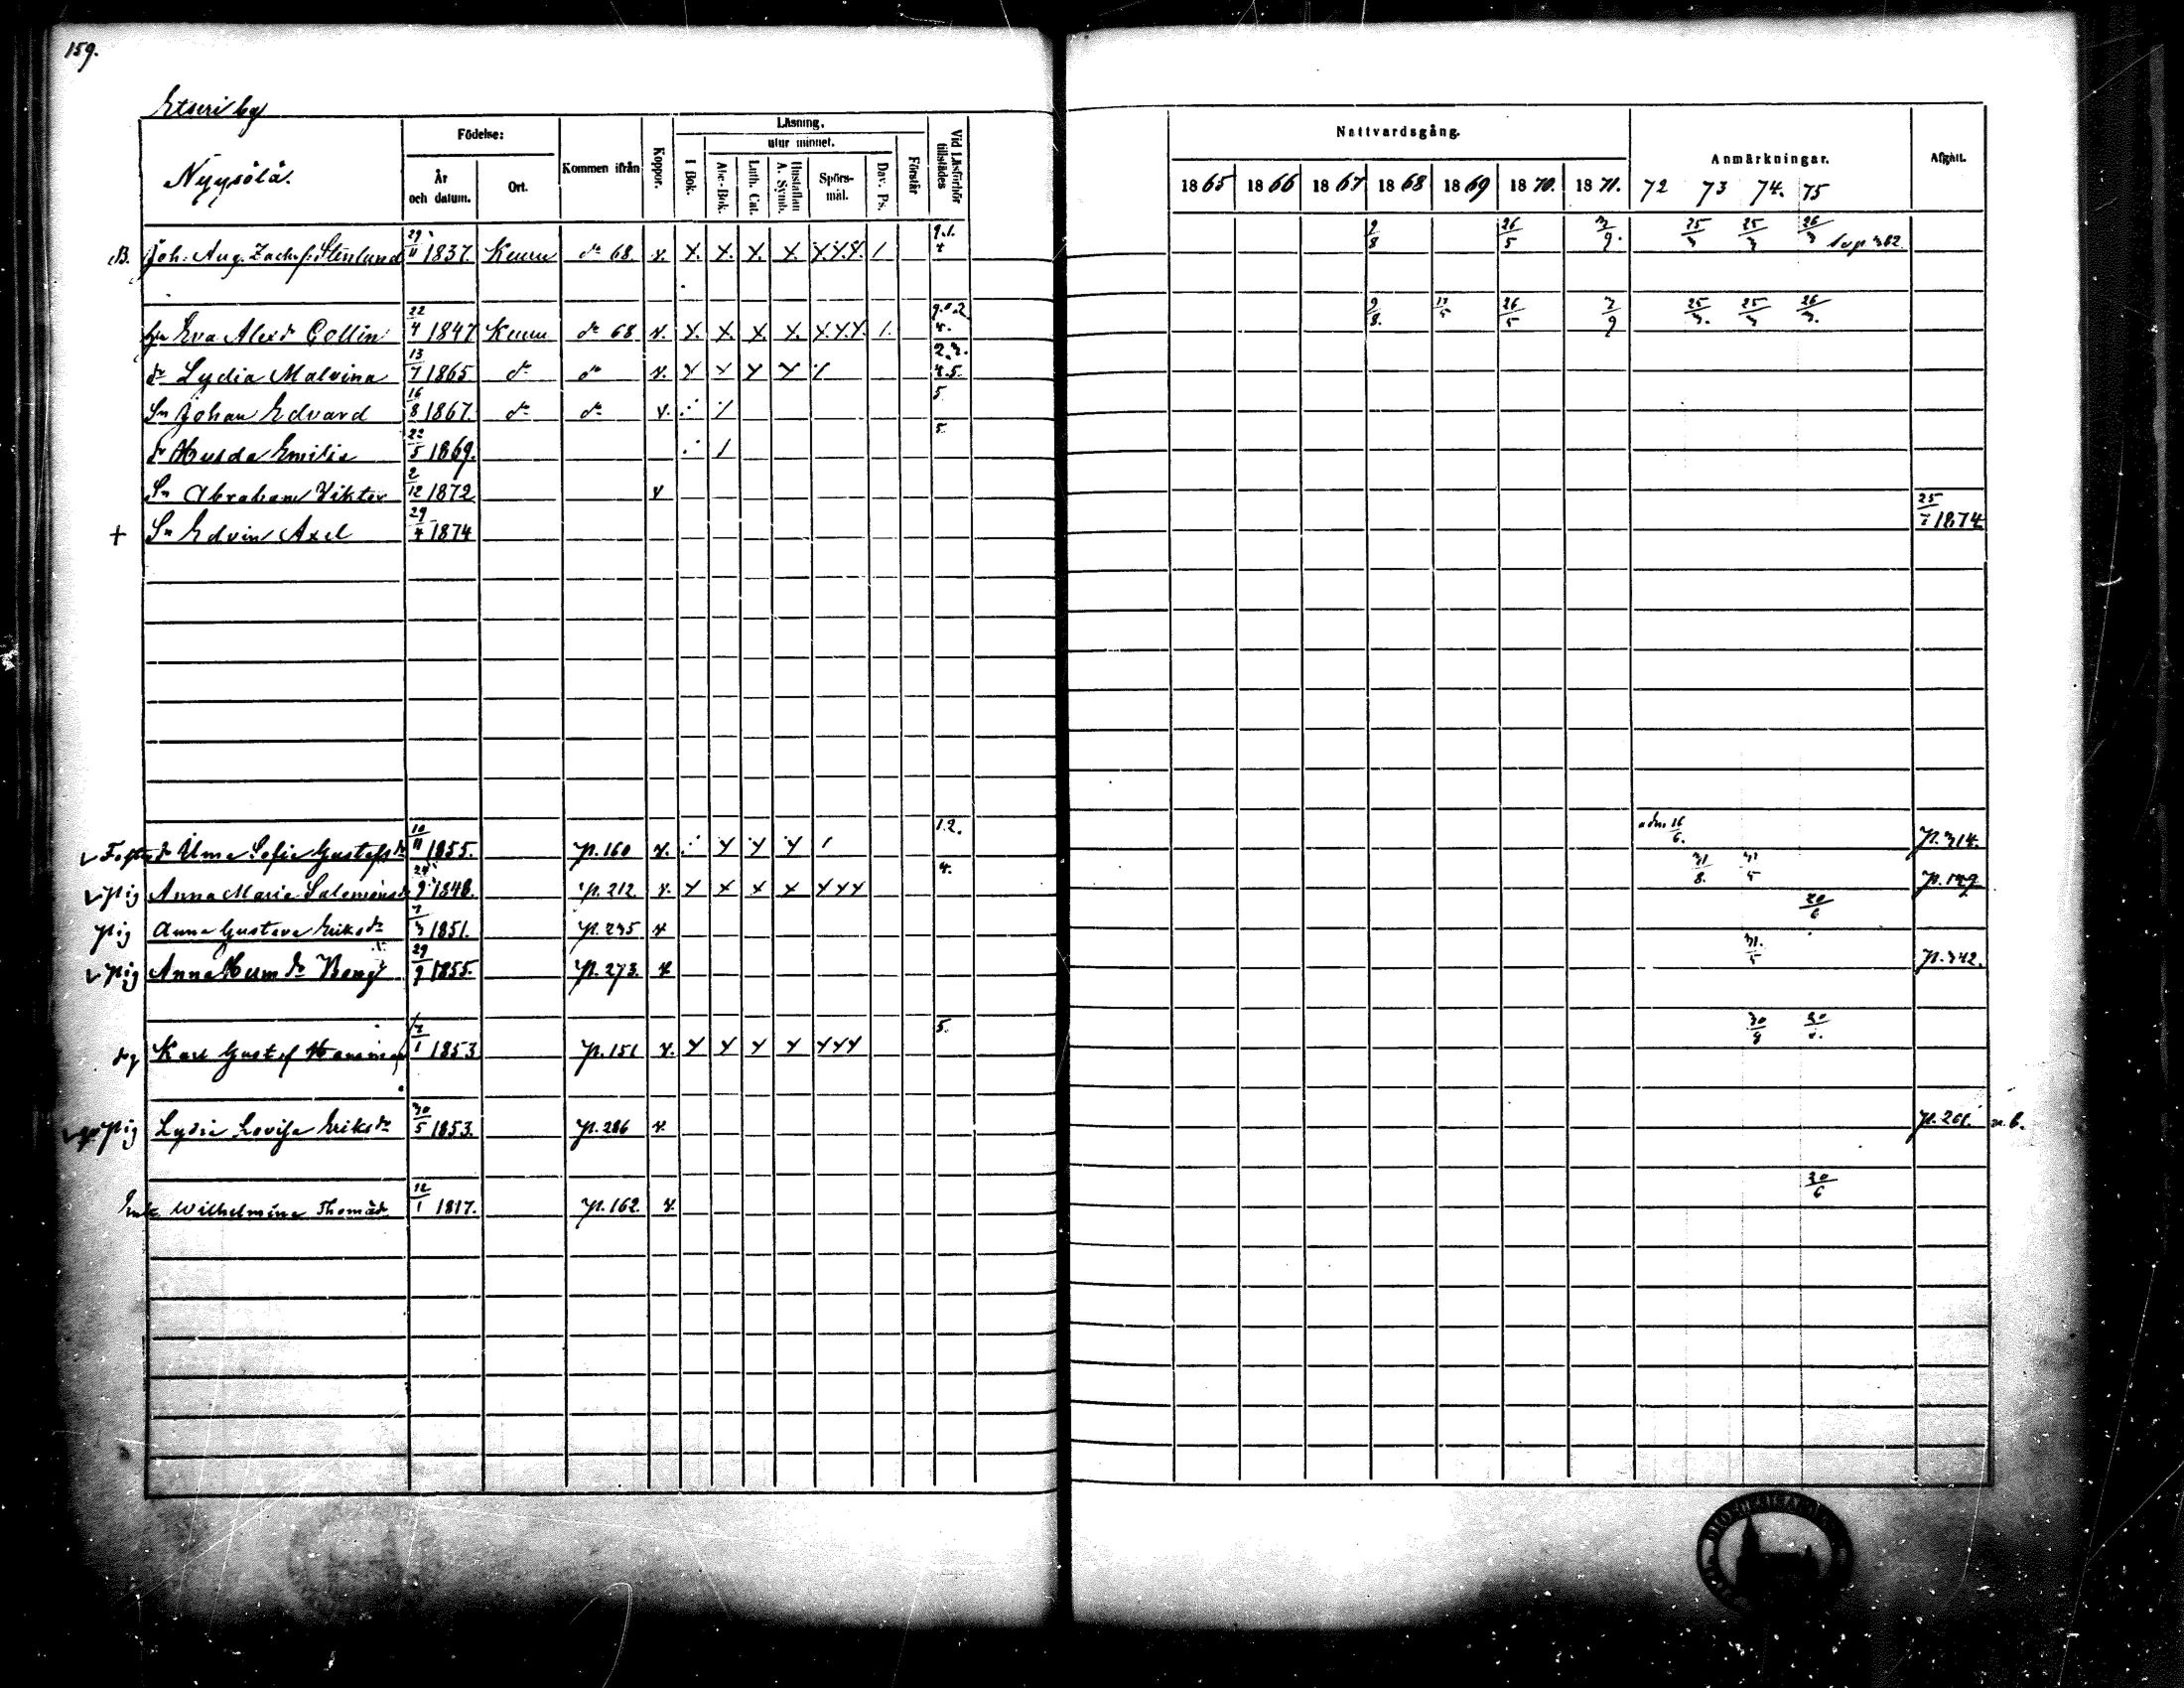 159.
Etseri by
Nyysölä.
Födelse:
År och datum.
Ort.
Kommen ifrån
Koppor.
Läsning.
I Bok.
utur minnet.
Abc-Bok.
Luth. Cat.
Hustaflan A. Symb.
Spörs-mål.
Dav. Ps.
Förstår
Vid Läsförhör tillstädes
Nattvardsgång.
1865 1866 1867 1868 1869 1870. 1871.
Anmärkningar.
72 73 74. 75
Afgått.
B. Joh. Aug. Zachrs. Stenlund 29/11 1837. Keuru do 68. x. X. X. X. X XXX. 1 2/8 26/5 3/9. 25/3 25/3 26/3
Eva Alexdr Collin 22/4 1847 Keuru do 68 x. X. X. X. X. XXX. 1. 9/8. 17/5 26/5 3/9 25/3. 25/3 26/3.
dr Lydia Malvina 13/7 1865 do do x. 2.3. 4.5.
Sn Johan Edvard 16/8 1867. do do x. 5
dr Hulda Emilia 22/5 1869. 5.
Sn Abraham Viktor 2/12 1872 x
+ Sn Edvin Axel 29/4 1874 25/7 1874
dr Alma Sofia Gustafsdr 10/11 1855. p. 160 x. 1.2. adm 16/6. p. 314.
v pig Anna Maria Salomonsdr 24/9 1848. p. 212 x. x x x x xxx 4. 31/8. 31/5 p. 129
pig Anna Gustava Eriksdr 7/3 1851. p. 235 x 20/6
v pig Anna Hermdr Berg 29/9 1855. p. 273. x 31./5 p. 342.
drg Karl Gustaf 7/1 1853 p. 151 x. x x x x xxx 5. 30/9
pig Lydia Lovisa Eriksdr 30/5 1853. p. 286 x p. 261. n. b.
Enk. Wilhelmina Thomasdr 12/1 1817. p. 162. x. 30/6